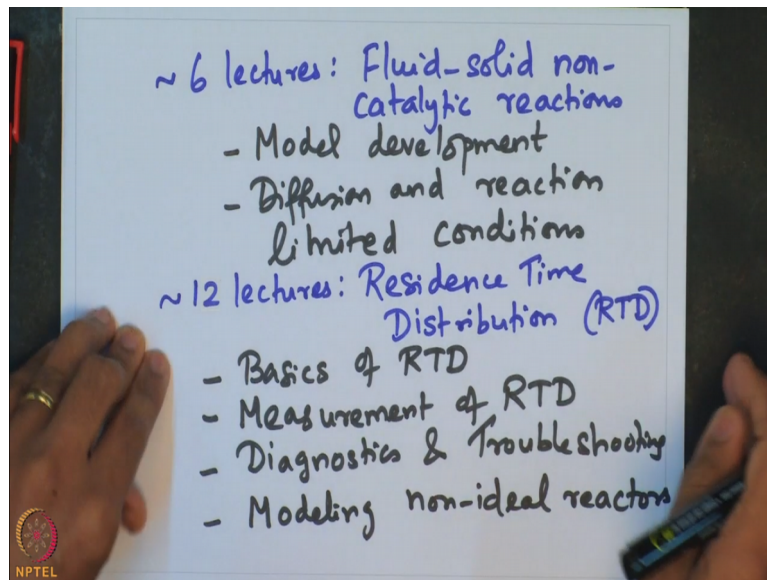 ~ 6 lectures: Fluid-solid non-
catalytic reactions
- Model development
- Diffusion and reaction
limited conditions
~ 12 lectures: Residence Time
Distribution (RTD)
- Basics of RTD
- Measurement of RTD
- Diagnostics & Troubleshooting
- Modeling non-ideal reactors
NPTEL